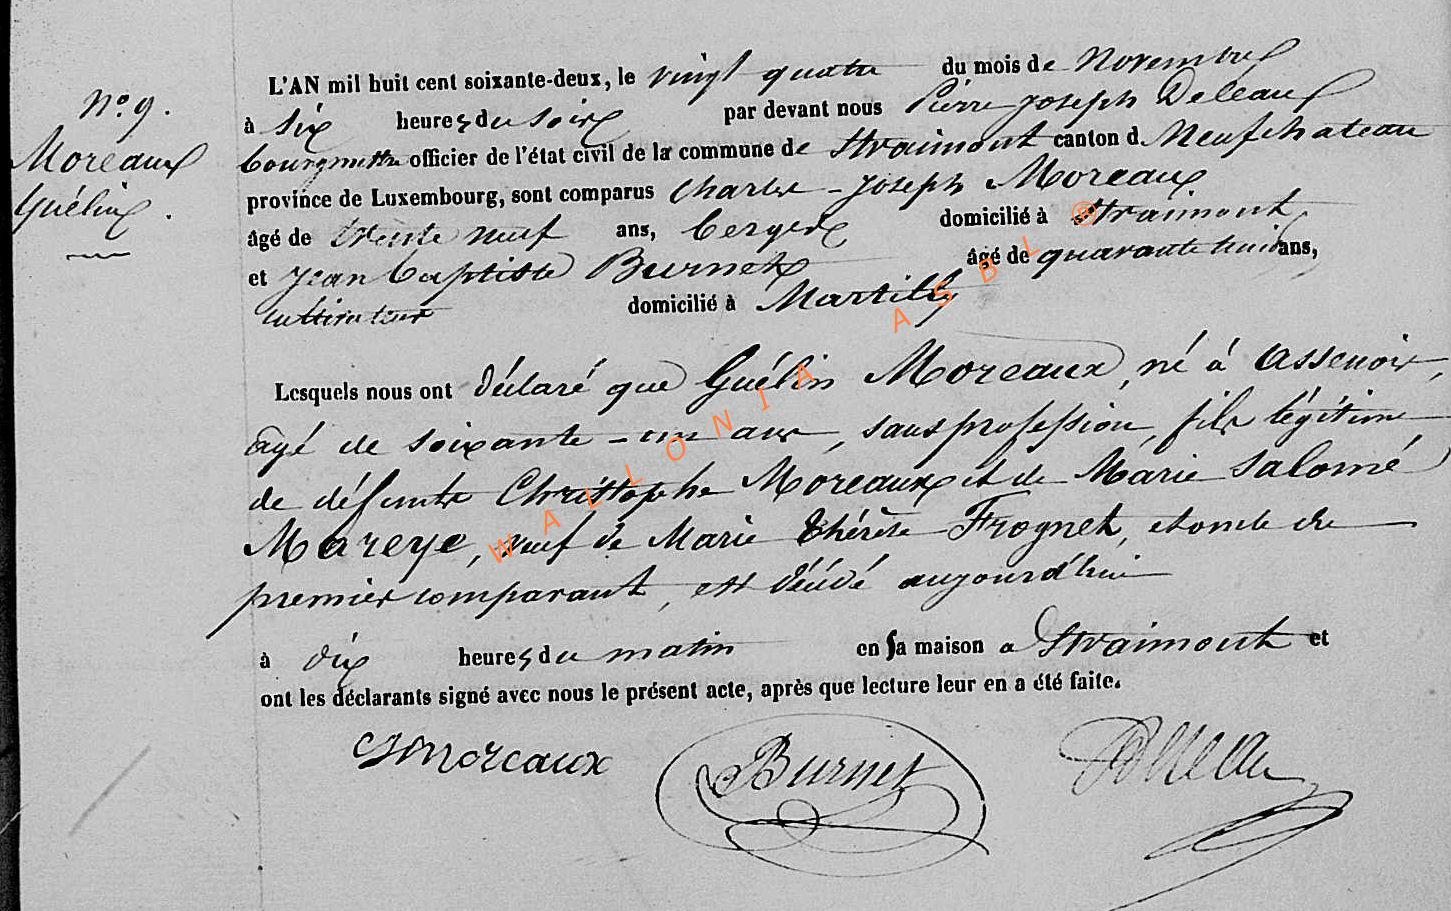 L'AN mil huit cent soixante-deux, le vingt quatre du mois de Novembre
N° 9.
à six heures du soir par devant nous Pierre Joseph Deleau
Moreaux
bourgmestre officier de l'état civil de la commune de Straimont canton d. Neufchateau
Guélin.
province de Luxembourg, sont comparus Charles-Joseph Moreaux
âgé de trente neuf ans, berger domicilié à Straimont
et Jean Baptiste Burnet âgé de quarante huit ans,
cultivateur domicilié à Martilly
Lesquels nous ont déclaré que Guélin Moreaux, né à Assenois,
agé de soixante-un ans, sans profession, fils légitime
de défunts Christophe Moreaux et de Marie Salomé
Mareye, veuf de Marie Thérèse Frognet, et oncle du
premier comparant, est décédé aujourd'hui
à dix heures du matin en sa maison a Straimont et
ont les déclarants signé avec nous le présent acte, après que lecture leur en a été faite.
CJMoreaux Burnet Deleau
WALLONIA ASBL ®